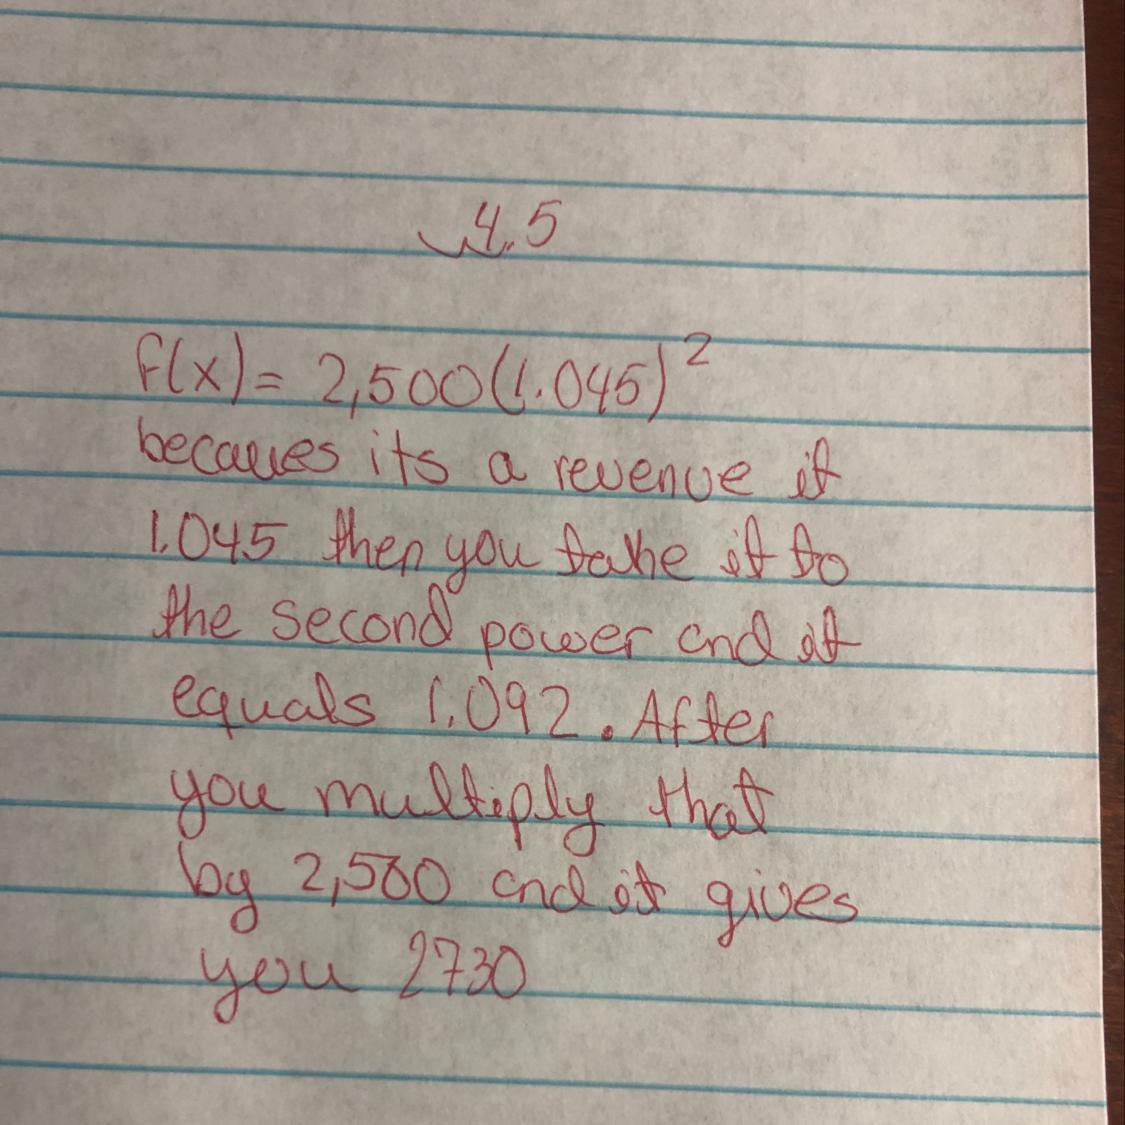 4.5
f(x) = 2,500(1.045)²
becaues its a revenue it
1.045 then you take it to
the second power and it
equals 1.092. After
you multiply that
by 2,500 and it gives
you 2730